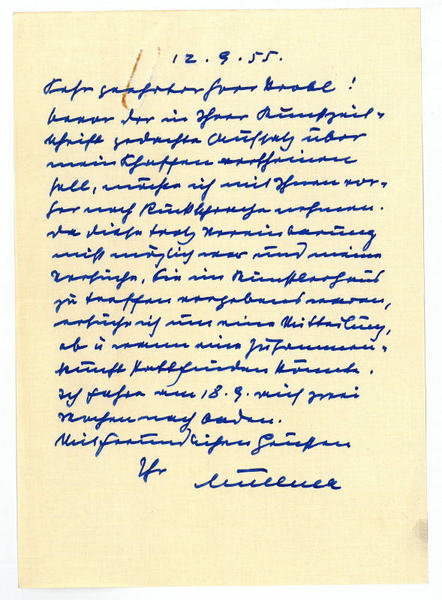 12.9.55.
Sehr geehrter Herr Strobl!
bevor der in Ihrer Kunstzeit-
schrift gedachte Aufsatz über
mein Schaffen erscheinen
soll, möchte ich mit Ihnen vor-
her noch Rücksprache nehmen.
Da diese trotz Vereinbarung
nicht möglich war und meine
Versuche, Sie im Künstlerhaus
zu treffen vergebens waren,
ersuche ich um eine Mitteilung,
ob u wann eine Zusammen-
kunft stattfinden könnte.
Ich fahre am 18.9. auf zwei
Wochen nach Baden.
Mit freundlichen Grüssen
Ihr Müllner